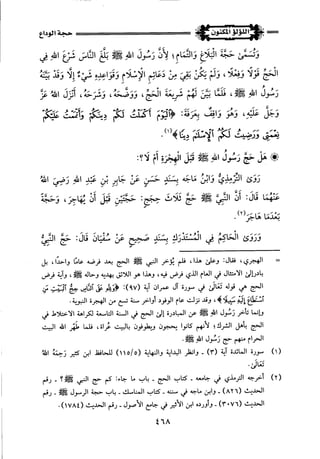 اللؤلؤ المكنون
حجة الوداع
وَتُسَمَّى حَجَّةَ الْبَلَاغِ وَالتَّمَامِ؛ لِأَنَّ رَسُولَ اللهِ ﷺ بَلَّغَ النَّاسَ شَرْعَ اللهِ فِي
الْحَجِّ قَوْلًا وَفِعْلًا، وَلَمْ يَكُنْ بَقِيَ مِنْ دَعَائِمِ الْإِسْلَامِ وَقَوَاعِدِهِ شَيْءٌ إِلَّا وَقَدْ بَيَّنَهُ
رَسُولُ اللهِ ﷺ، فَلَمَّا بَيَّنَ لَهُمْ شَرِيعَةَ الْحَجِّ، وَوَضَّحَهُ، وَشَرَحَهُ، أَنْزَلَ اللهُ عَزَّ
وَجَلَّ عَلَيْهِ، وَهُوَ وَاقِفٌ بِعَرَفَةَ: ﴿الْيَوْمَ أَكْمَلْتُ لَكُمْ دِينَكُمْ وَأَتْمَمْتُ عَلَيْكُمْ
نِعْمَتِي وَرَضِيتُ لَكُمُ الْإِسْلَامَ دِينًا﴾(١).
هَلْ حَجَّ رَسُولُ اللهِ ﷺ قَبْلَ الْهِجْرَةِ أَمْ لَا؟:
رَوَى التِّرْمِذِيُّ وَابْنُ مَاجَه بِسَنَدٍ حَسَنٍ عَنْ جَابِرِ بْنِ عَبْدِ اللهِ رَضِيَ اللهُ
عَنْهُمَا قَالَ: أَنَّ النَّبِيَّ ﷺ حَجَّ ثَلَاثَ حِجَجٍ: حَجَّتَيْنِ قَبْلَ أَنْ يُهَاجِرَ، وَحَجَّةً
بَعْدَمَا هَاجَرَ(٢).
وَرَوَى الْحَاكِمُ فِي الْمُسْتَدْرَكِ بِسَنَدٍ صَحِيحٍ عَنْ سُفْيَانَ قَالَ: حَجَّ النَّبِيُّ
= الهجري، فقال: وعلى هذا، فلم يُؤخر النبي ﷺ الحج بعد فرضه عامًا واحدًا، بل
بادر إلى الامتثال في العام الذي فرض فيه، وهذا هو اللائق بهديه وحاله ﷺ، وآية فرض
الحج هي قوله تعالى في سورة آل عمران آية (٩٧): ﴿وَلِلَّهِ عَلَى النَّاسِ حِجُّ الْبَيْتِ مَنِ
اسْتَطَاعَ إِلَيْهِ سَبِيلًا﴾، وقد نزلت عام الوفود أواخر سنة تسع من الهجرة النبوية.
وإنما تأخر رسول الله ﷺ عن المبادرة إلى الحج في السنة التاسعة لكراهة الاختلاط في
الحج بأهل الشرك؛ لأنهم كانوا يحجون ويطوفون بالبيت عُراة، فلما طهر الله البيت
الحرام منهم حج رسول الله ﷺ.
(١) سورة المائدة آية (٣) - وانظر البداية والنهاية (١١٥/٥) للحافظ ابن كثير رَحِمَهُ اللهُ
تَعَالَى.
(٢) أخرجه الترمذي في جامعه - كتاب الحج - باب ما جاء: كم حج النبي ﷺ؟ - رقم
الحديث (٨٢٦) - وابن ماجه في سننه - كتاب المناسك - باب حجة الرسول ﷺ - رقم
الحديث (٣٠٧٦) - وأورده ابن الأثير في جامع الأصول - رقم الحديث (١٧٨٤).
٤٦٨